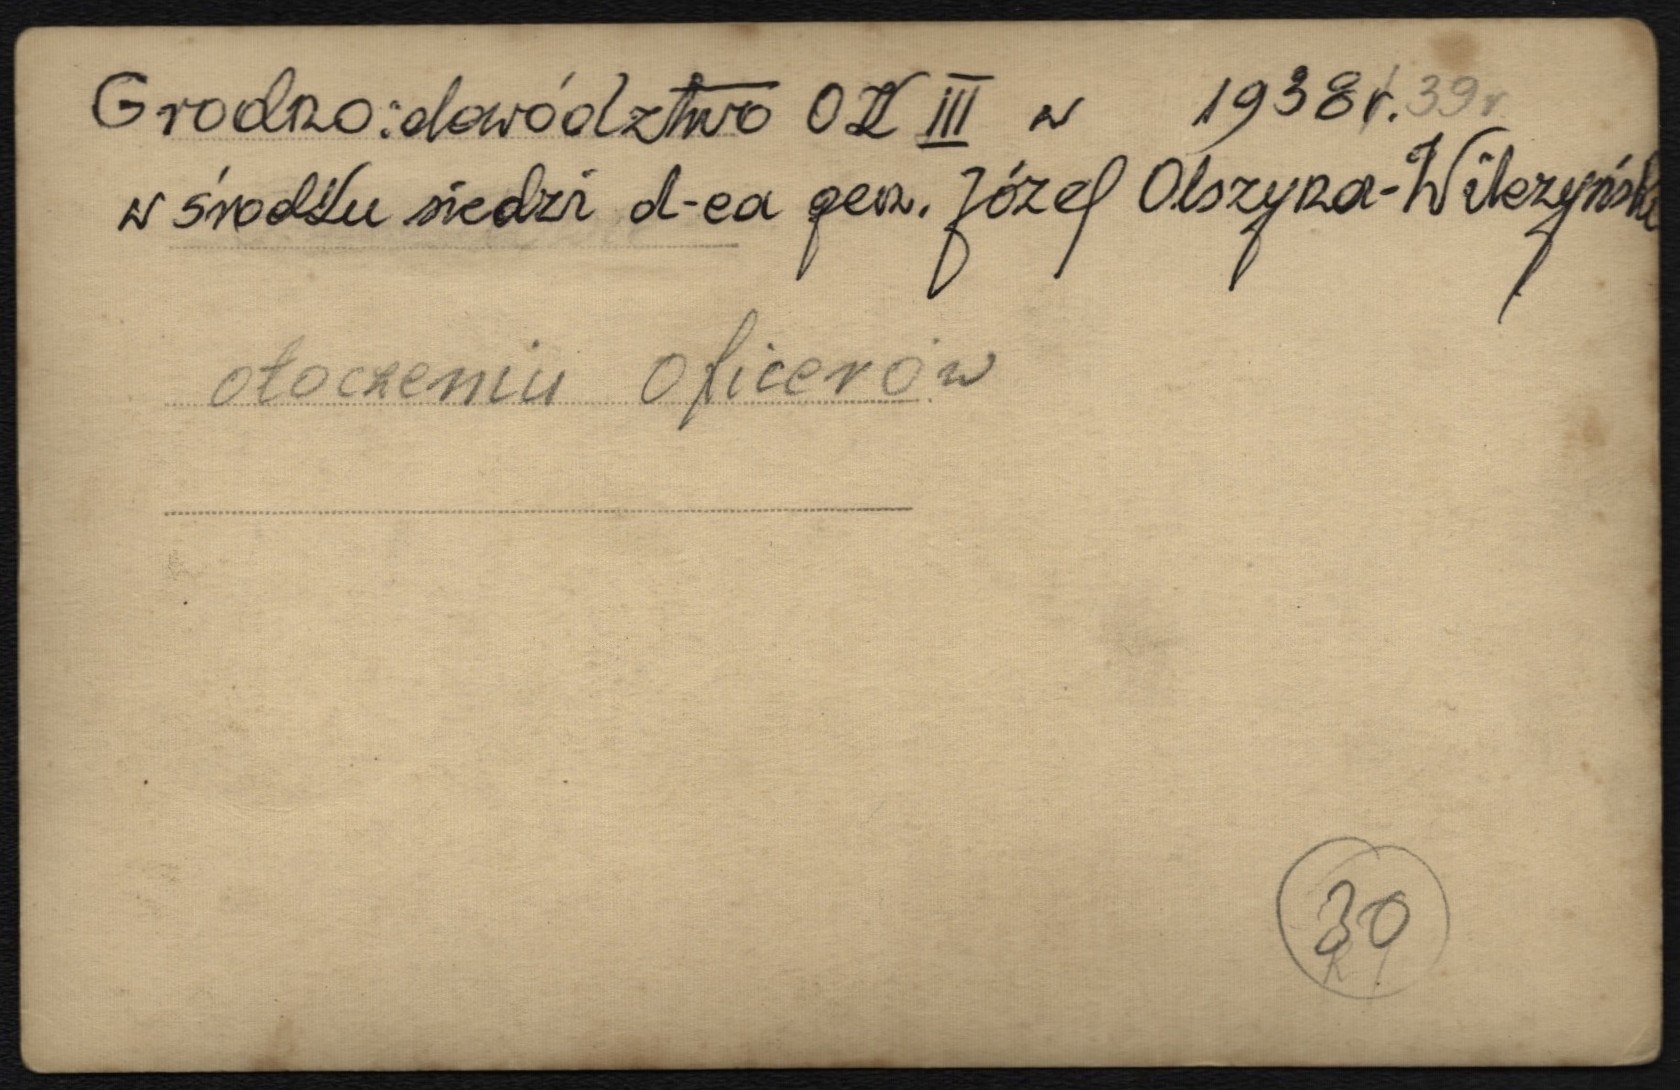 Grodno: dowództwo OK III w 1938r. 39r
w środku siedzi d-ca gen. Józef Olszyna-Wilczyński
otoczeniu oficerów
30